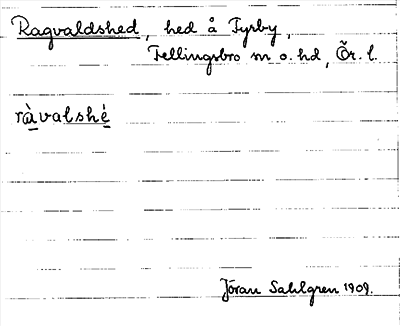 Ragvaldshed, hed å Fyrby,
Fellingsbro sn o. hd, Ör. l.
ràvalshè
Jöran Sahlgren 1909.